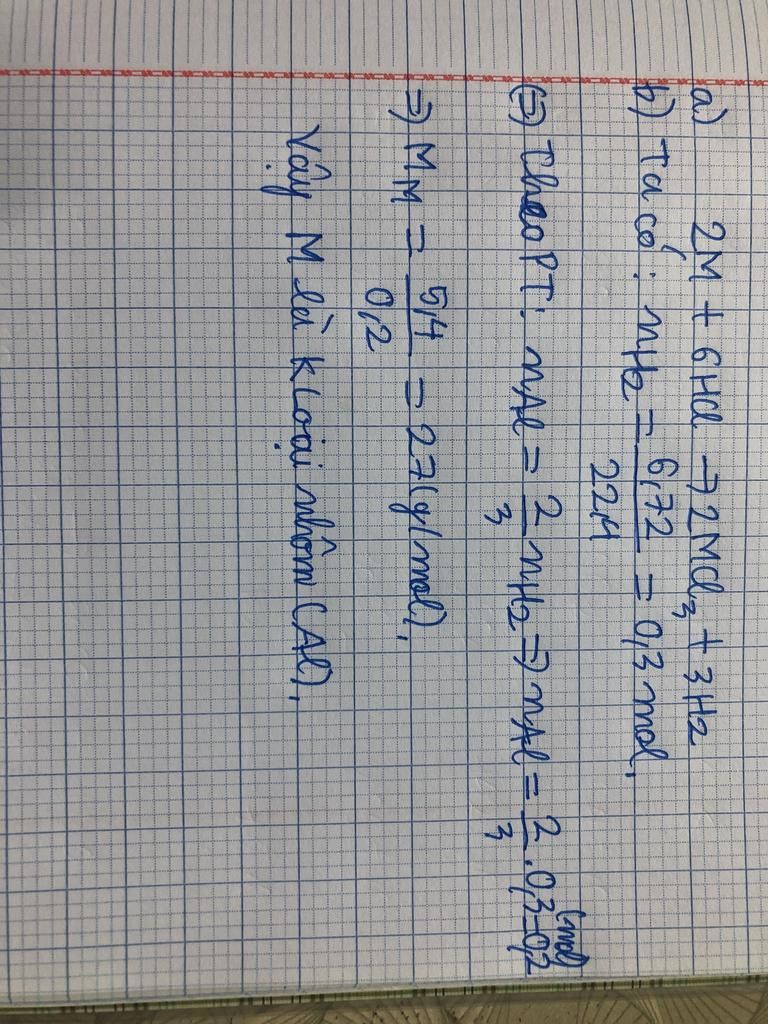 a) 2M + 6HCl → 2MCl3 + 3H2
b) Ta có: nH2 = 6,72/22,4 = 0,3 mol.
(=) Theo PT: nAl = 2/3 nH2 => nAl = 2/3 . 0,3 = 0,2 (mol
=> MM = 5,4/0,2 = 27(g/mol).
Vậy M là kloại nhôm (Al).